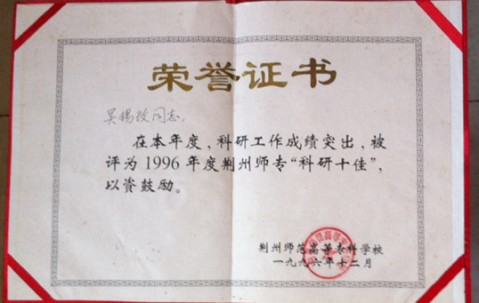 荣誉证书
吴锡改同志:
在本年度,科研工作成绩突出,被
评为1996年度荆州师专“科研十佳”,
以资鼓励。
荆州师范高等专科学校
一九九六年十二月